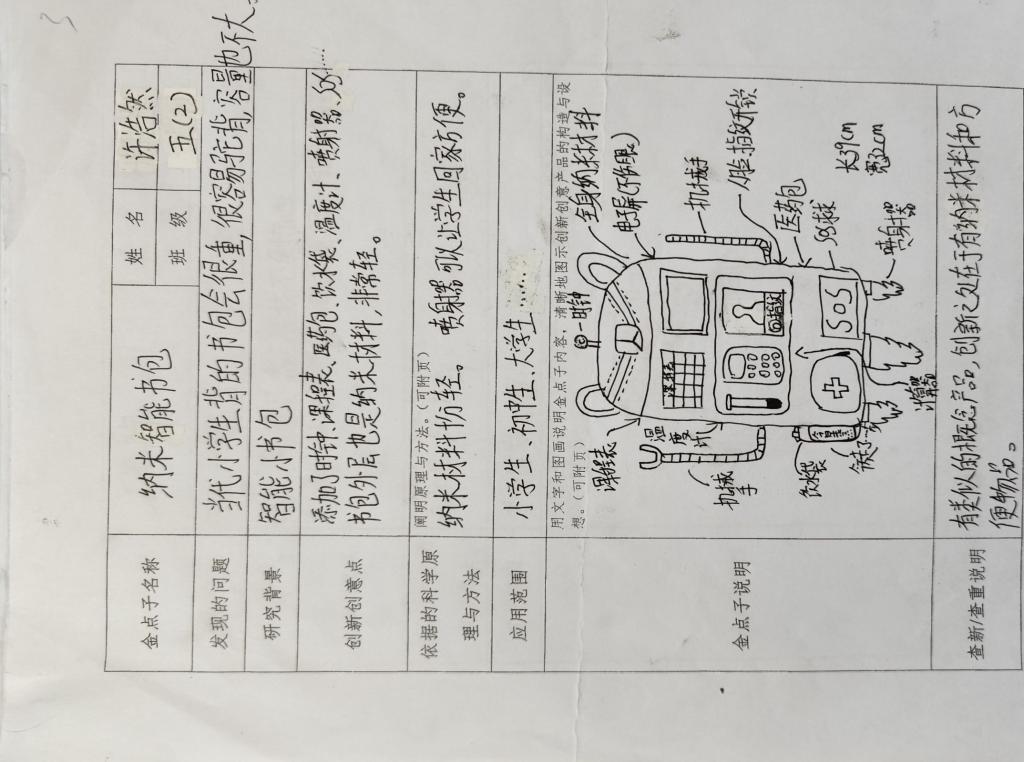 金点子名称
纳米智能书包
姓 名
许浩然
班 级
五(2)
发现的问题
当代小学生背的书包会很重,很容易驼背,容量也不大。
研究背景
智能小书包
创新创意点
添加了时钟、课程表、医药包、饮水袋、温度计、喷射器、SOS……
书包外层也是纳米材料,非常轻。
依据的科学原
理与方法
阐明原理与方法。(可附页)
纳米材料仿轻。 喷射器可以让学生回家方便。
应用范围
小学生、初中生、大学生……
金点子说明
用文字和图画说明金点子内容,清晰地图示创新创意产品的构造与设
想。(可附页)
时钟
全身纳米材料
电子屏(不伤眼)
机械手
人脸指纹开锁
医药包
SOS求救
长39cm
宽32cm
喷射器
课程表
温度计
机械手
饮水袋
课程表
SOS
查新/查重说明
有类似的概念产品,创新之处在于有纳米材料和方
便物品。